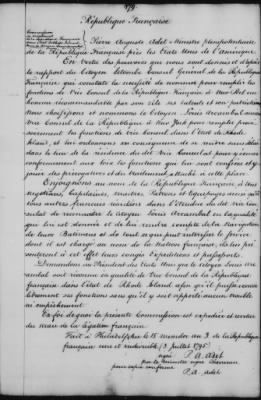 179
République Française
Pierre Auguste Adet Ministre plénipotentiaire
de la République Française près les Etats Unis de l'Amérique
En vertu des pouvoirs que nous sont donnés et d'après
le rapport du Citoyen Létombe Consul Général de la République
Française qui constate la nécessité de nommer pour remplir les
fonctions de Vice Consul de la République Française à
recommandable par son zèle ses talents et son patriotisme
Nous choisissons et nommons le Citoyen Louis Arcambal
Vice Consul de la République à New York pour remplir
les fonctions de vice Consul dans l'état de Rhode
Island, et lui ordonnons en conséquence de se rendre
dans le lieu de la résidence du dit Vice Consulat pour y exercer
conformément aux lois les fonctions qui lui sont confiées et y
jouir des prérogatives et du traitement attachés à cette place.
Enjoignons au nom de la République Française, à tous
négotians, Capitaines, maitres, Patrons et Equipages ainsi qu'à
tous autres français résidans dans l'étendue du dit vice
consulat de reconnaître le Citoyen Louis Arcambal en la qualité
que lui est donnée et de lui rendre compte de la Navigation
de leurs Batimens et de tout ce qui peut intéresser le service
dont il est chargé au nom de la Nation française, de lui
à cet effet leurs congés expéditions et passeports.
Demandons au Président des Etats Unis que le citoyen Louis
Arcambal soit reconnu en qualité de Vice Consul de la République
française dans l'état de Rhode Island afin qu'il puisse exercer
librement ses fonctions sans qu'il y soit apporté aucun trouble
ni empêchement.
En foi de quoi la présente Commission est expédiée et scellée
du sceau de la légation française
Fait à Philadelphie le 15 messidor an 3 de la République
française une et indivisible (3 Juillet 1795)
signé P. A. Adet
par le Ministre signé
pour copie conforme
P. A. Adet